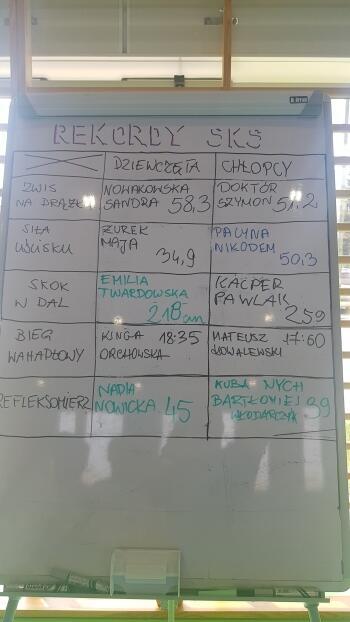 REKORDY SKS
DZIEWCZĘTA CHŁOPCY
ZWIS NA DRĄŻKU NOWAKOWSKA SANDRA 58,3 DOKTÓR SZYMON
SIŁA UŚCISKU ŻUREK MAJA 34,9 PACYNA NIKODEM 50,3
SKOK W DAL EMILIA TWARDOWSKA 218cm KACPER PAWLAK 259
BIEG WAHADŁOWY KINGA ORCHOWSKA 18:35 MATEUSZ KOWALEWSKI
REFLEKSOMIERZ NADIA NOWICKA 45 KUBA NYCH BARTŁOMIEJ WŁODARCZYK 39